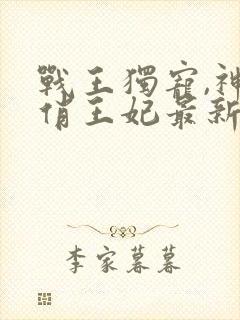 戰王獨寵,神
俏王妃最新
李家暮暮